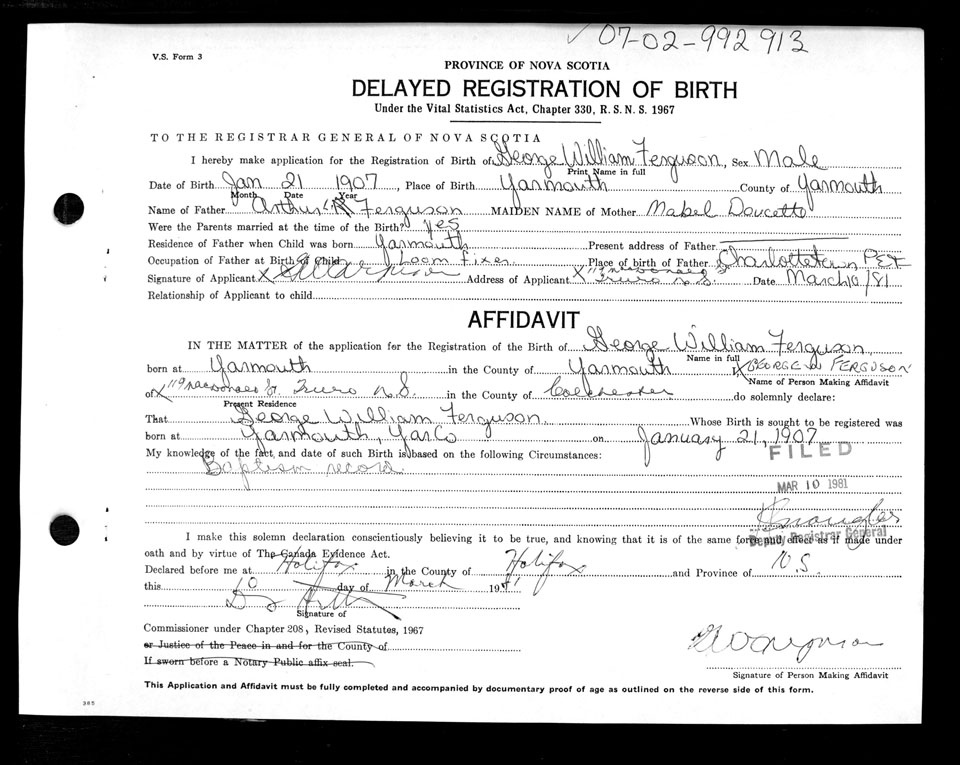 07-02-992913
V.S. Form 3
PROVINCE OF NOVA SCOTIA
DELAYED REGISTRATION OF BIRTH
Under the Vital Statistics Act, Chapter 330, R. S. N. S. 1967
TO THE REGISTRAR GENERAL OF NOVA SCOTIA
I hereby make application for the Registration of Birth of George William Ferguson, Sex Male
Print Name in full
Date of Birth Jan 21 1907, Place of Birth Yarmouth County of Yarmouth
Month Date Year
Name of Father Arthur Ferguson MAIDEN NAME of Mother Mabel Doucette
Were the Parents married at the time of the Birth? yes
Residence of Father when Child was born Yarmouth Present address of Father
Occupation of Father at Birth of Child Loom fixer Place of birth of Father Charlottetown PEI
Signature of Applicant X Address of Applicant X Truro N.S. Date March 10/81
Relationship of Applicant to child
AFFIDAVIT
IN THE MATTER of the application for the Registration of the Birth of George William Ferguson
Name in full
born at Yarmouth in the County of Yarmouth I X GEORGE W FERGUSON
Name of Person Making Affidavit
of X Truro N.S. in the County of Colchester do solemnly declare:
Present Residence
That George William Ferguson Whose Birth is sought to be registered was
born at Yarmouth, Yar Co on January 21, 1907
My knowledge of the fact, and date of such Birth is based on the following Circumstances:
FILED
Baptism record.
MAR 10 1981
I make this solemn declaration conscientiously believing it to be true, and knowing that it is of the same force and effect as if made under
Deputy Registrar General
oath and by virtue of The Canada Evidence Act.
Declared before me at Halifax in the County of Halifax and Province of N.S.
this 10 day of March 1981
Signature of
Commissioner under Chapter 208, Revised Statutes, 1967
or Justice of the Peace in and for the County of
If sworn before a Notary Public affix seal.
Signature of Person Making Affidavit
This Application and Affidavit must be fully completed and accompanied by documentary proof of age as outlined on the reverse side of this form.
385